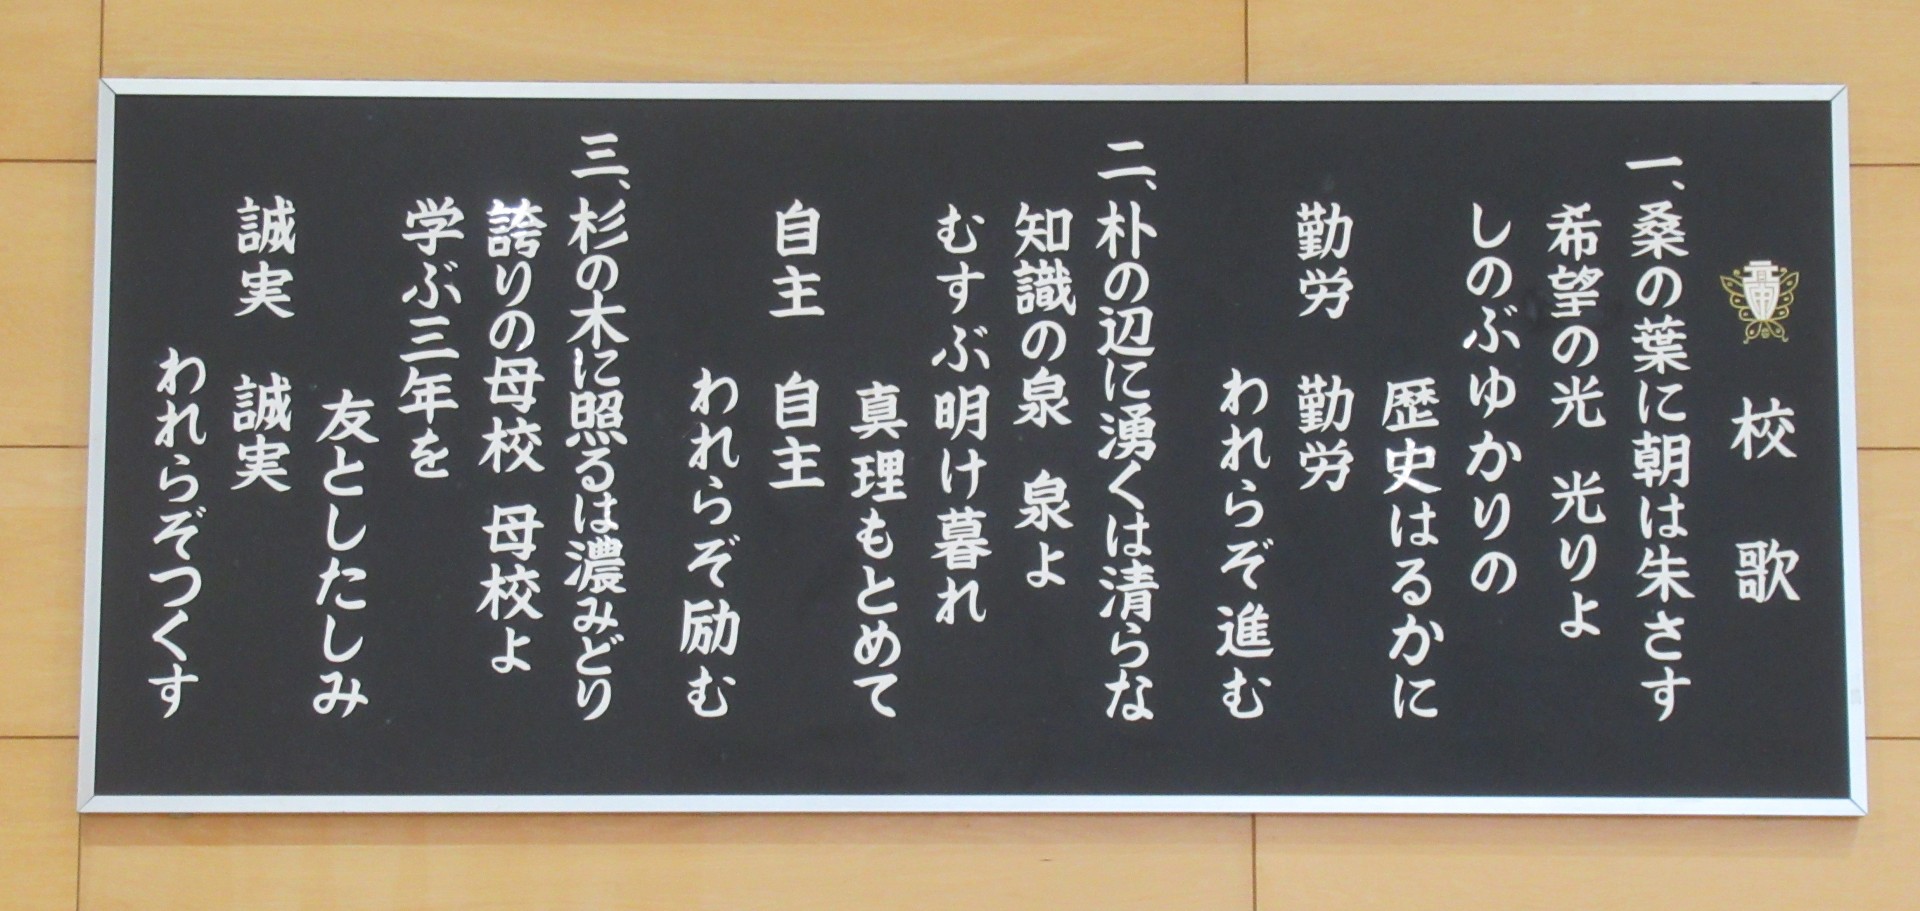 校歌
一、桑の葉に朝は朱さす
希望の光 光りよ
しのぶゆかりの
歴史はるかに
勤労 勤労
われらぞ進む
二、朴の辺に湧くは清らな
知識の泉 泉よ
むすぶ明け暮れ
真理もとめて
自主 自主
われらぞ励む
三、杉の木に照るは濃みどり
誇りの母校 母校よ
学ぶ三年を
友としたしみ
誠実 誠実
われらぞつくす